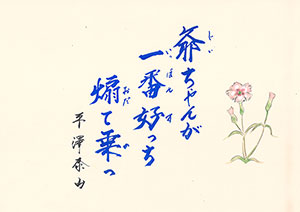 爺ちゃんが
一番好っち
煽て乗っ
平澤